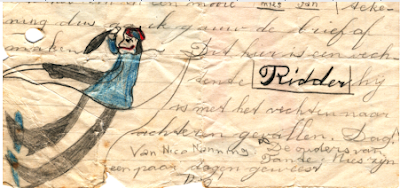 mies van
ning dus ga ik gauw de brief af
maken Dit hier is een vech
tende Ridder hij
is met het vechten naar
achteren gevallen. Dag!
Van Nico Manning De ouders van
Tante Mies zijn
een paar dagen geweest